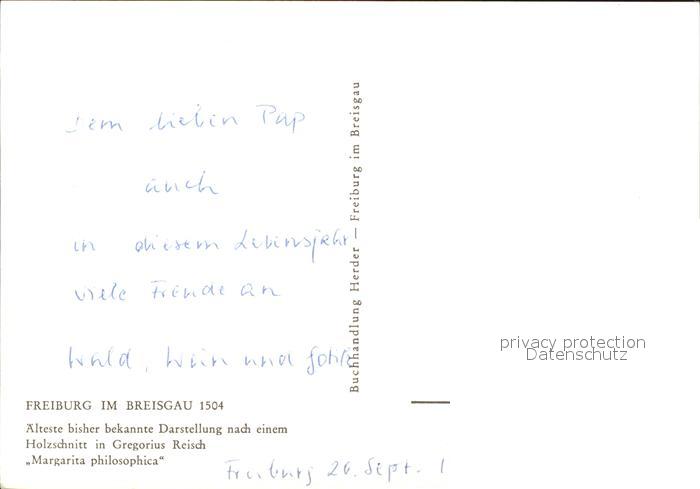 Dem lieben Pap
auch
in diesem Lebensjahr
viele Freude an
Wald, Wein und
Buchhandlung Herder — Freiburg im Breisgau
privacy protection
Datenschutz
FREIBURG IM BREISGAU 1504
Älteste bisher bekannte Darstellung nach einem
Holzschnitt in Gregorius Reisch
„Margarita philosophica“
Freiburg 26. Sept. 1